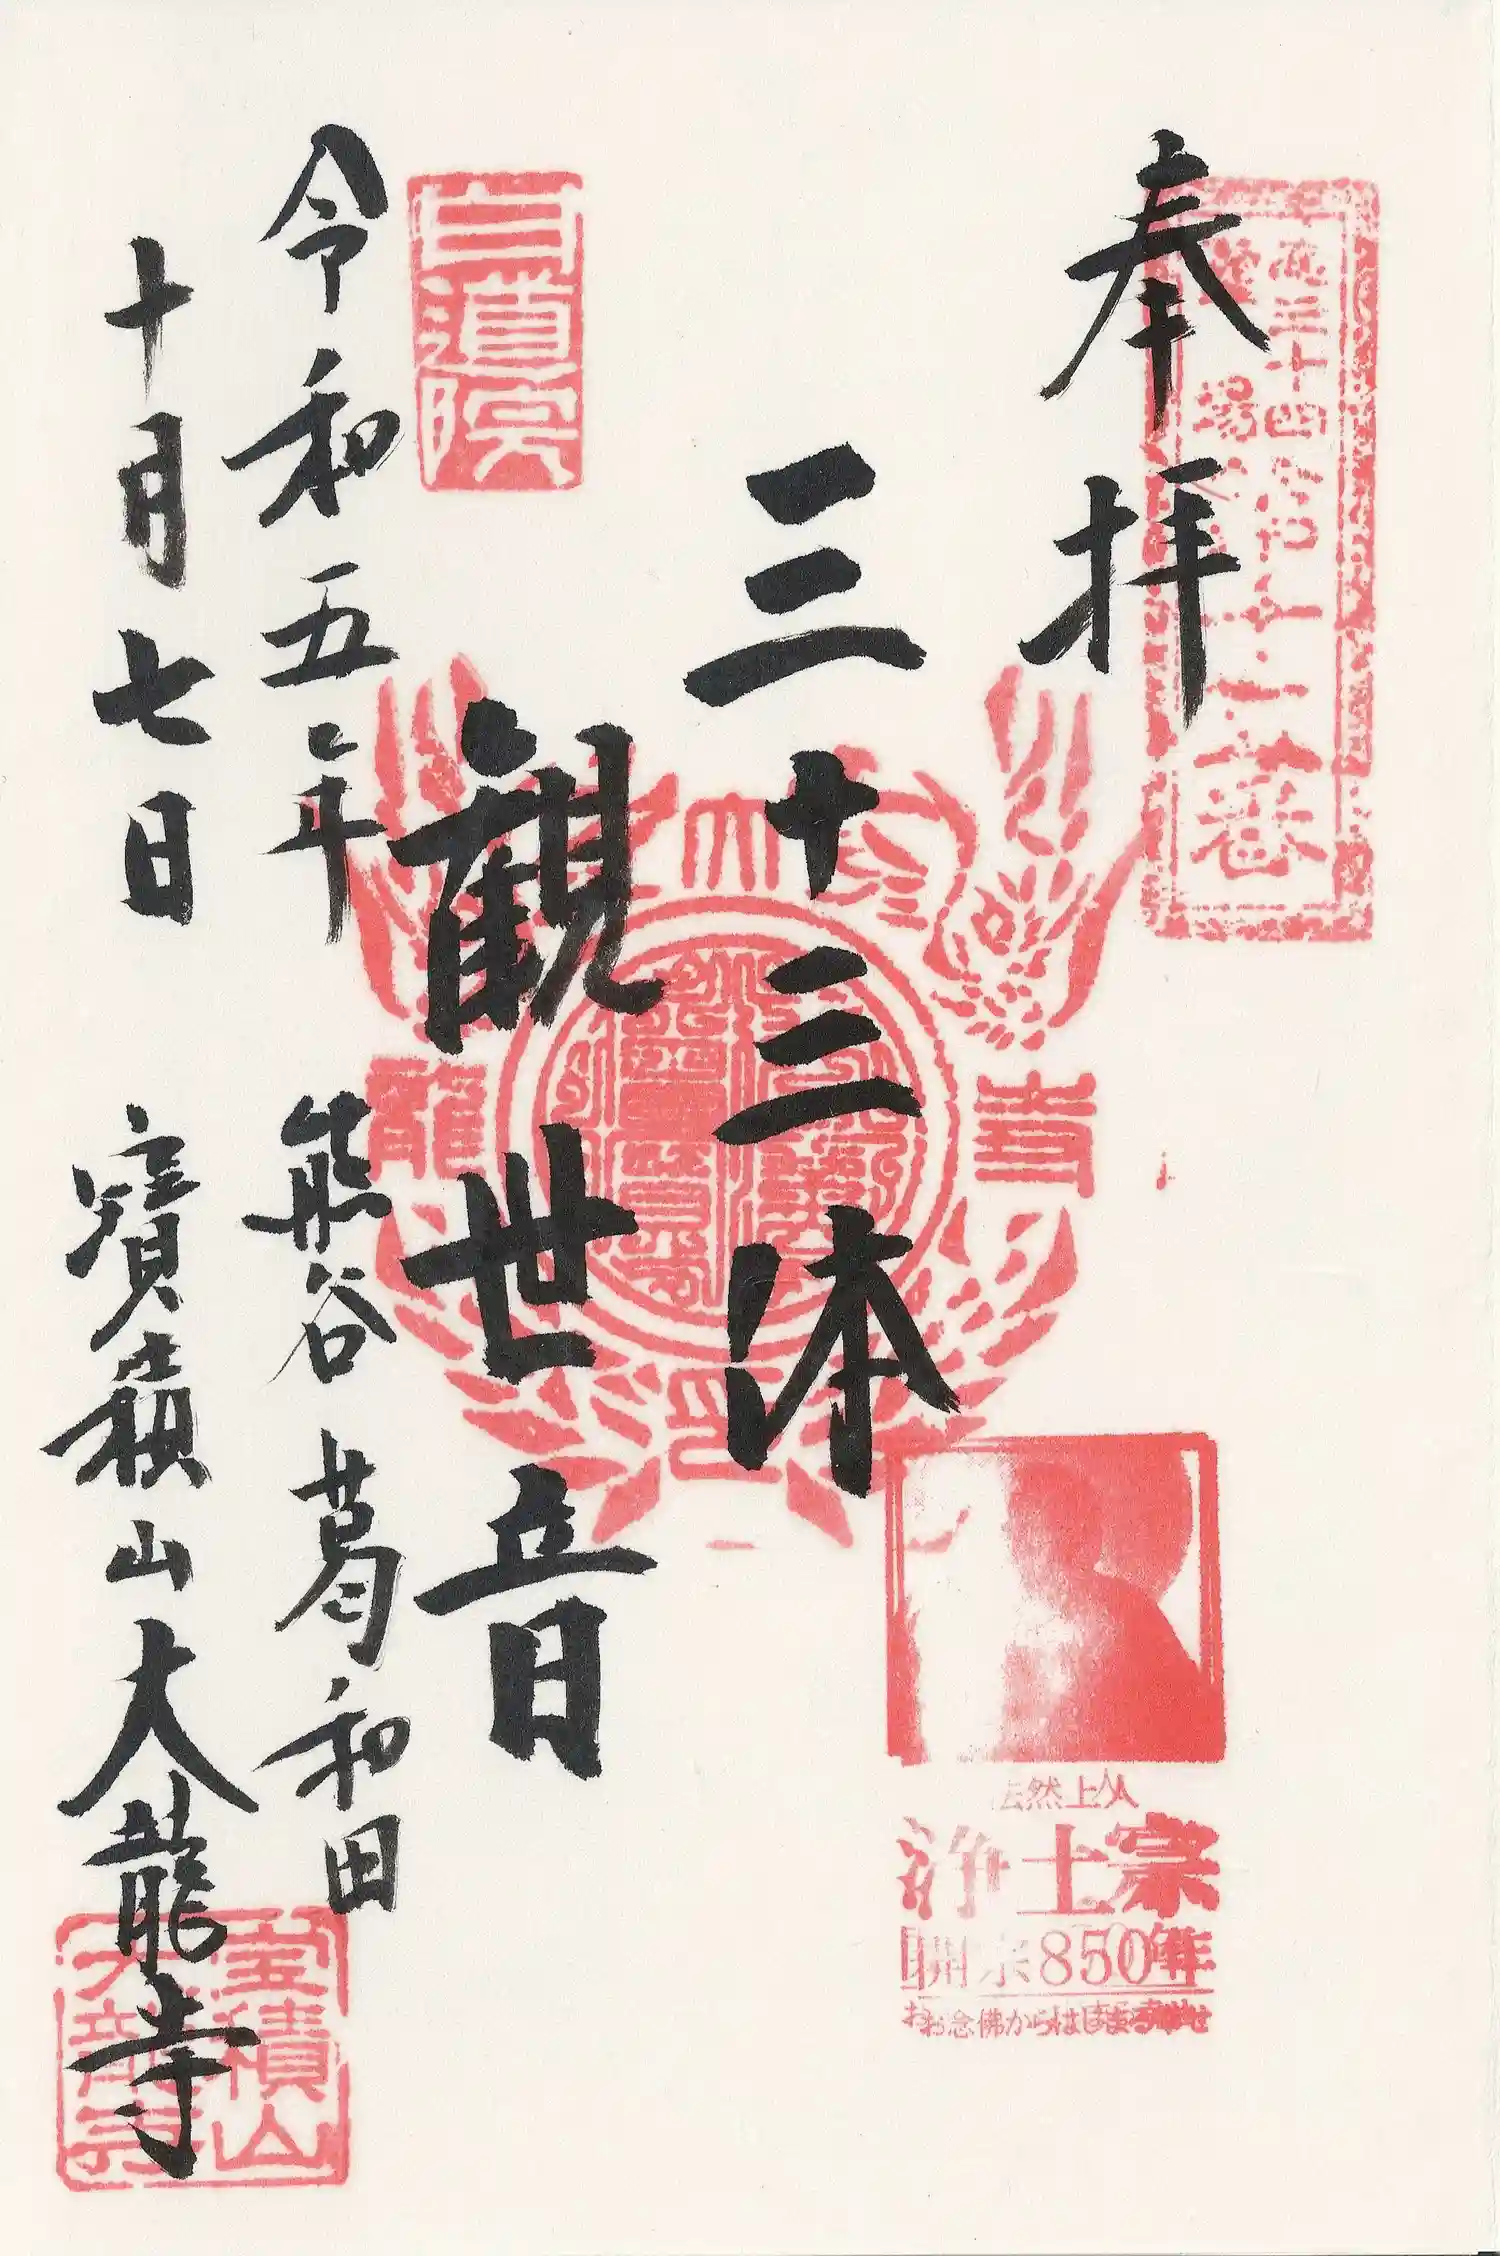 奉拝
三十三体
観世音
令和五年 熊谷葛和田
十月七日 寳積山大龍寺
白道院
大龍寺
法然上人
浄土宗
開宗850年
お念佛からはじまる幸せ
宝積山
大龍寺